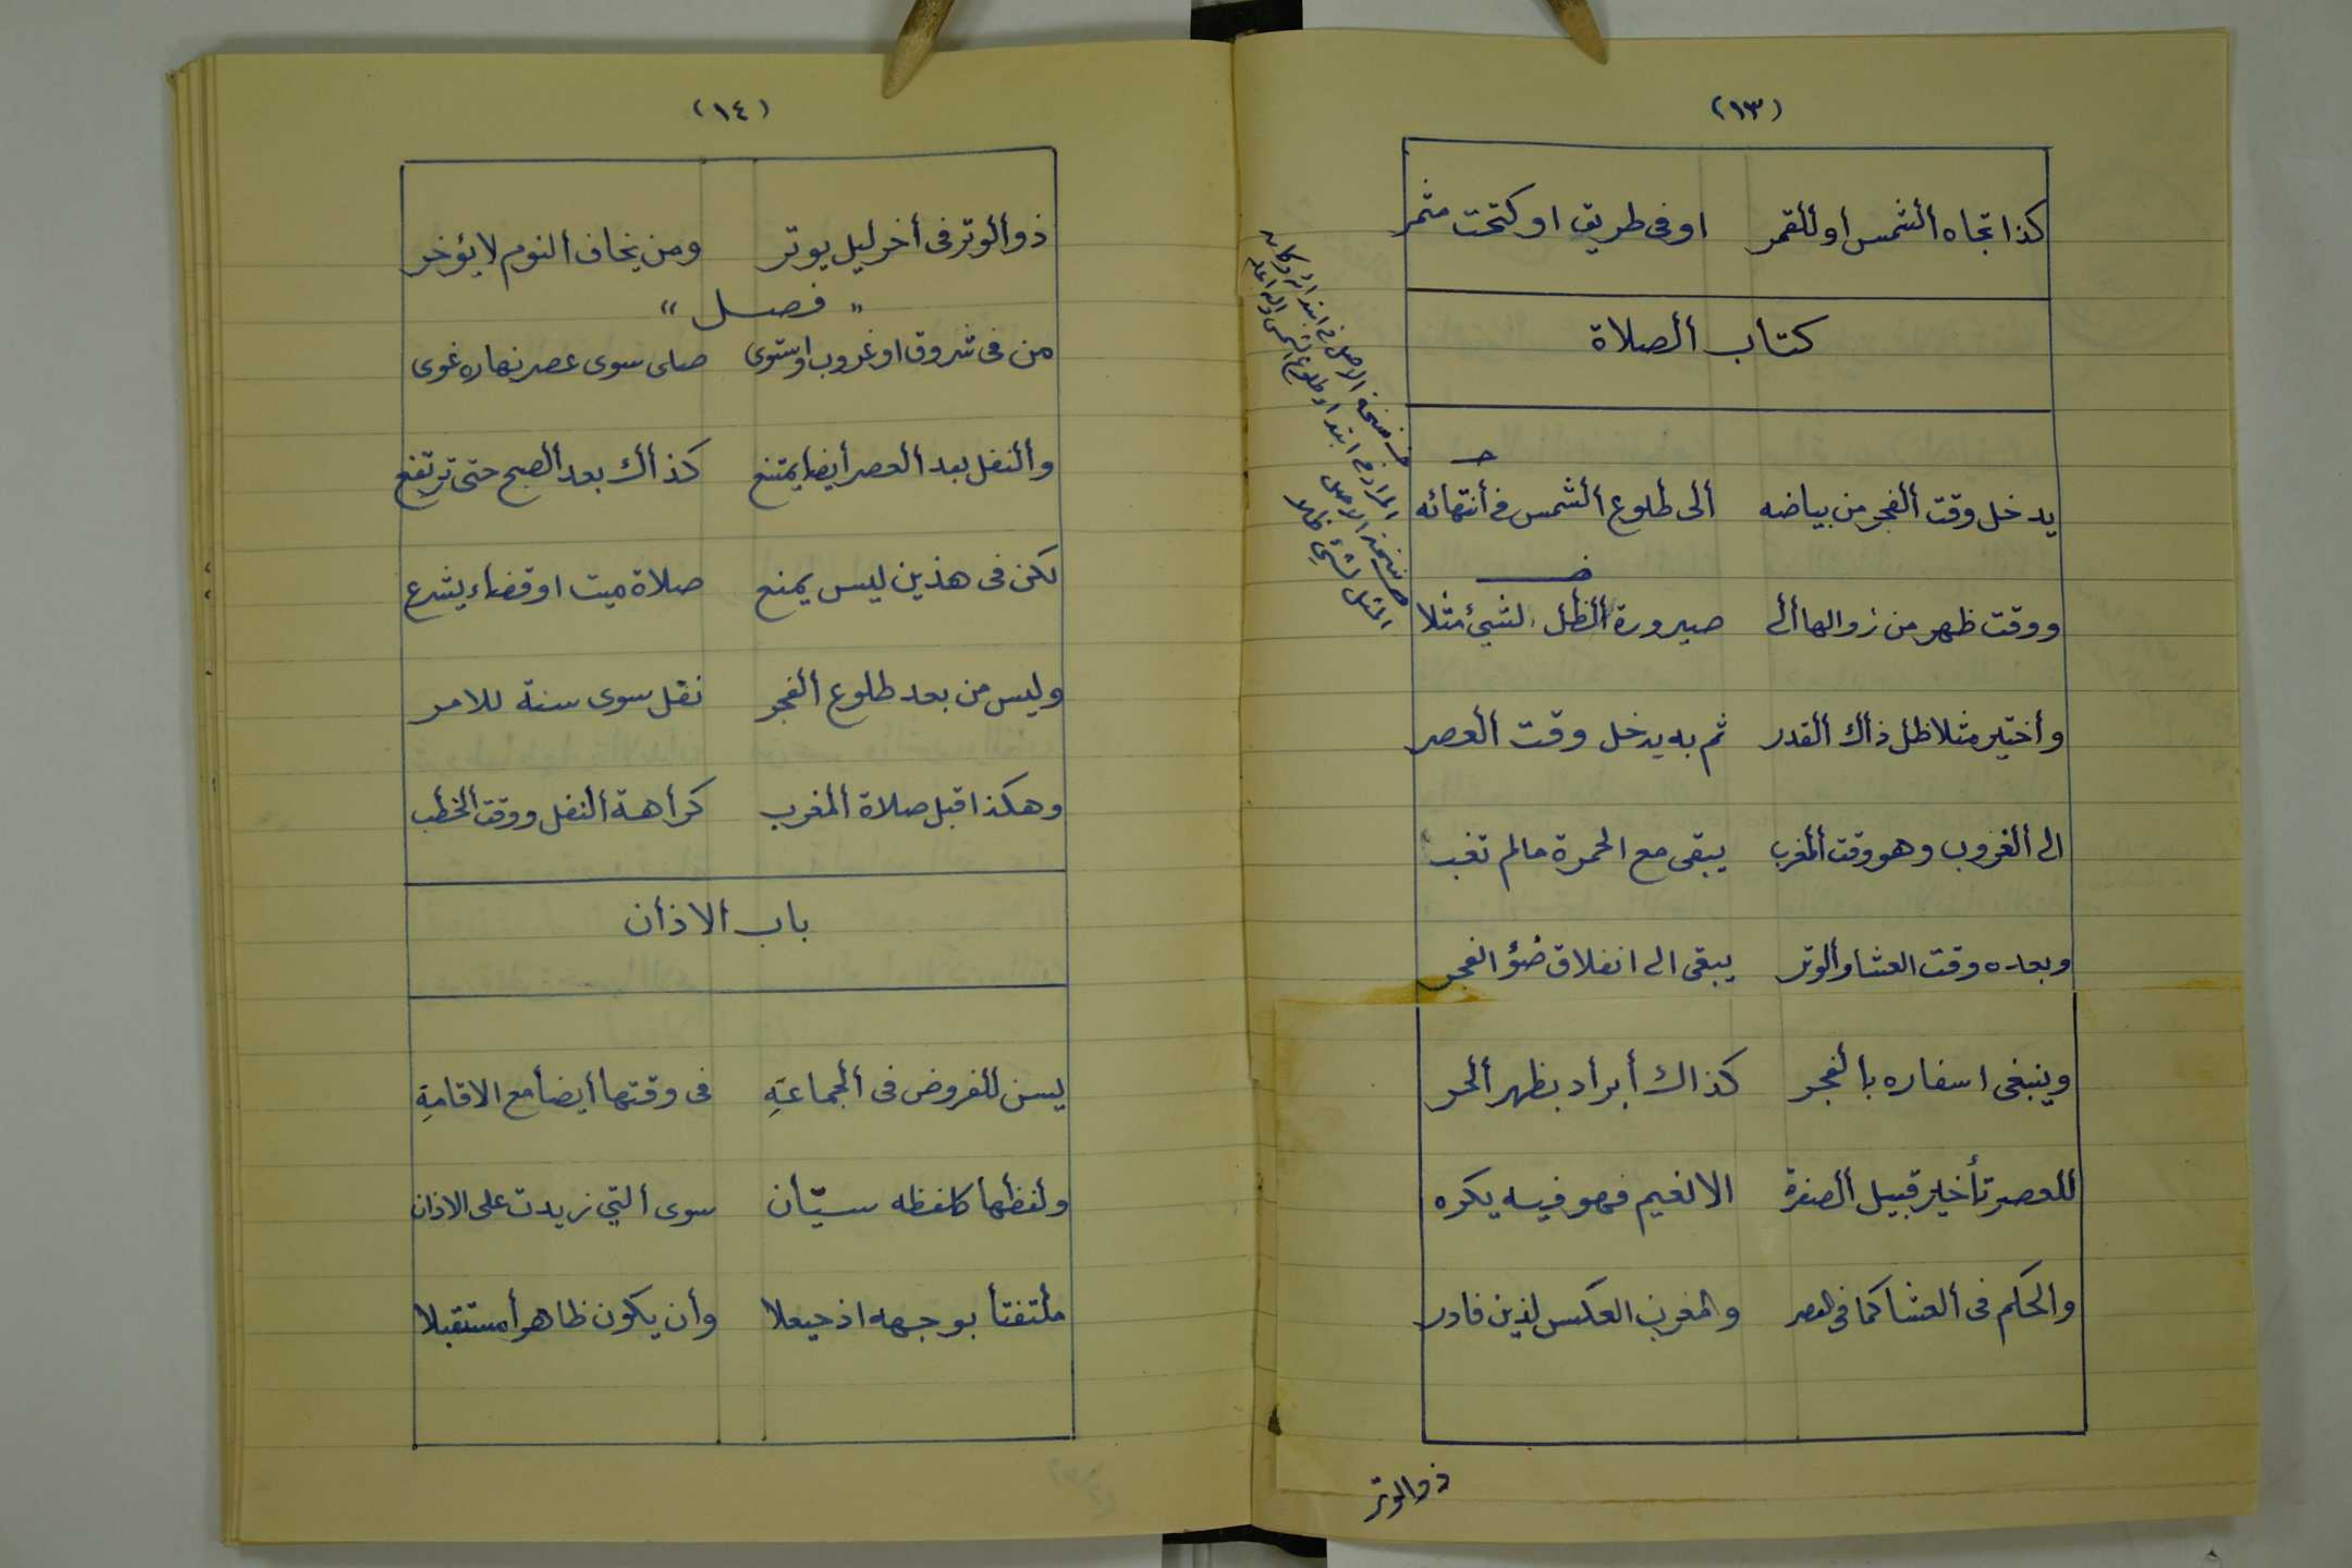 (١٣)
كذا تجاه ألشمس أو للقمر او فى طريق او كتحت مثمر
كتاب ألصلاة
يدخل وقت ألفجر من بياضه ألى طلوع ألشمس فى أنتهائه
ووقت ظهر من زوالها ألى صيرورة ألظل لشيئ مثلا
وأختير مثلا ظل ذاك ألقدر ثم به يدخل وقت ألعصر
الى ألغروب وهو وقت ألمغرب يبقى مع الحمرة مالم تغب
وبعده وقت العشا وألوتر يبقى الى انفلاق ضؤ الفجر
وينبغى اسفاره بألفجر كذاك أبراد بظهر ألحر
للعصر تأخير قبيل ألصفرة الا لغيم فهو فيه يكره
والحكم فى ألعشا كما فى العصر والمغرب العكس لذين فادر
ذو الوتر
فى نسخة الاصل فى ابتدائه وكان
المراد فى ابتداء طلوع الشمس والله اعلم
فى نسخة الاصل
المثل لشيئ ظلا
(١٤)
ذو ألوتر فى أخر ليل يوتر ومن يخاف ألنوم لا يؤخر
" فصل "
من فى شروق او غروب او ستوى صلى سوى عصر نهاره غوى
وألنفل بعد ألعصر أيضا يمتنع كذاك بعد ألصبح حتى ترتفع
لكن فى هذين ليس يمنع صلاة ميت او قضاء يشرع
وليس من بعد طلوع ألفجر نفل سوى سنة للامر
وهكذا قبل صلاة ألمغرب كرأهة ألنفل ووقت ألخطب
باب الاذأن
يسن للفروض فى ألجماعةِ فى وقتها أيضأ مع الاقامةِ
ولفظها كلفظه سيّأن سوى ألتي زيدت على الاذان
ملتفتأ بوجهه اذ حيعلا وأن يكون ظاهرأ مستقبلا